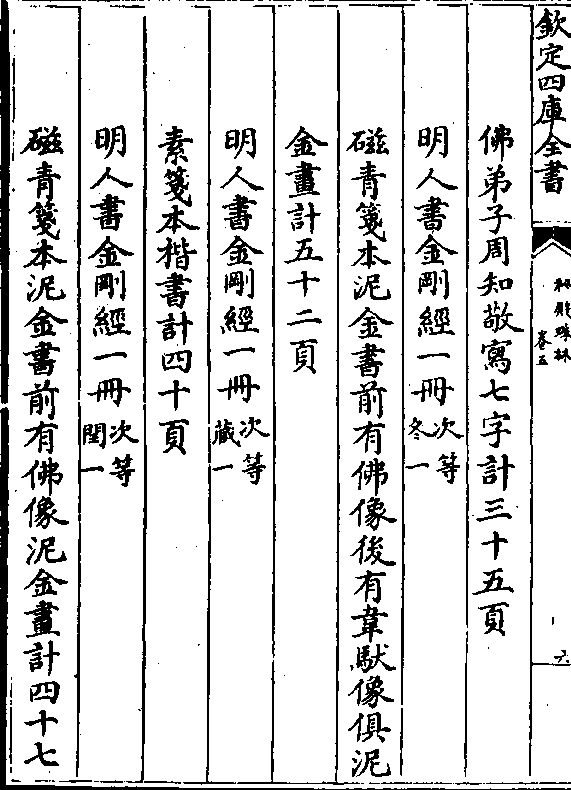 欽定四庫全書
秘殿珠林
卷五
六
佛弟子周知敬寫七字計三十五頁
明人書金剛經一冊次等冬一
磁青箋本泥金書前有佛像後有韋馱像俱泥
金畫計五十二頁
明人書金剛經一冊次等藏一
素箋本楷書計四十頁
明人書金剛經一冊次等閏一
磁青箋本泥金書前有佛像泥金畫計四十七